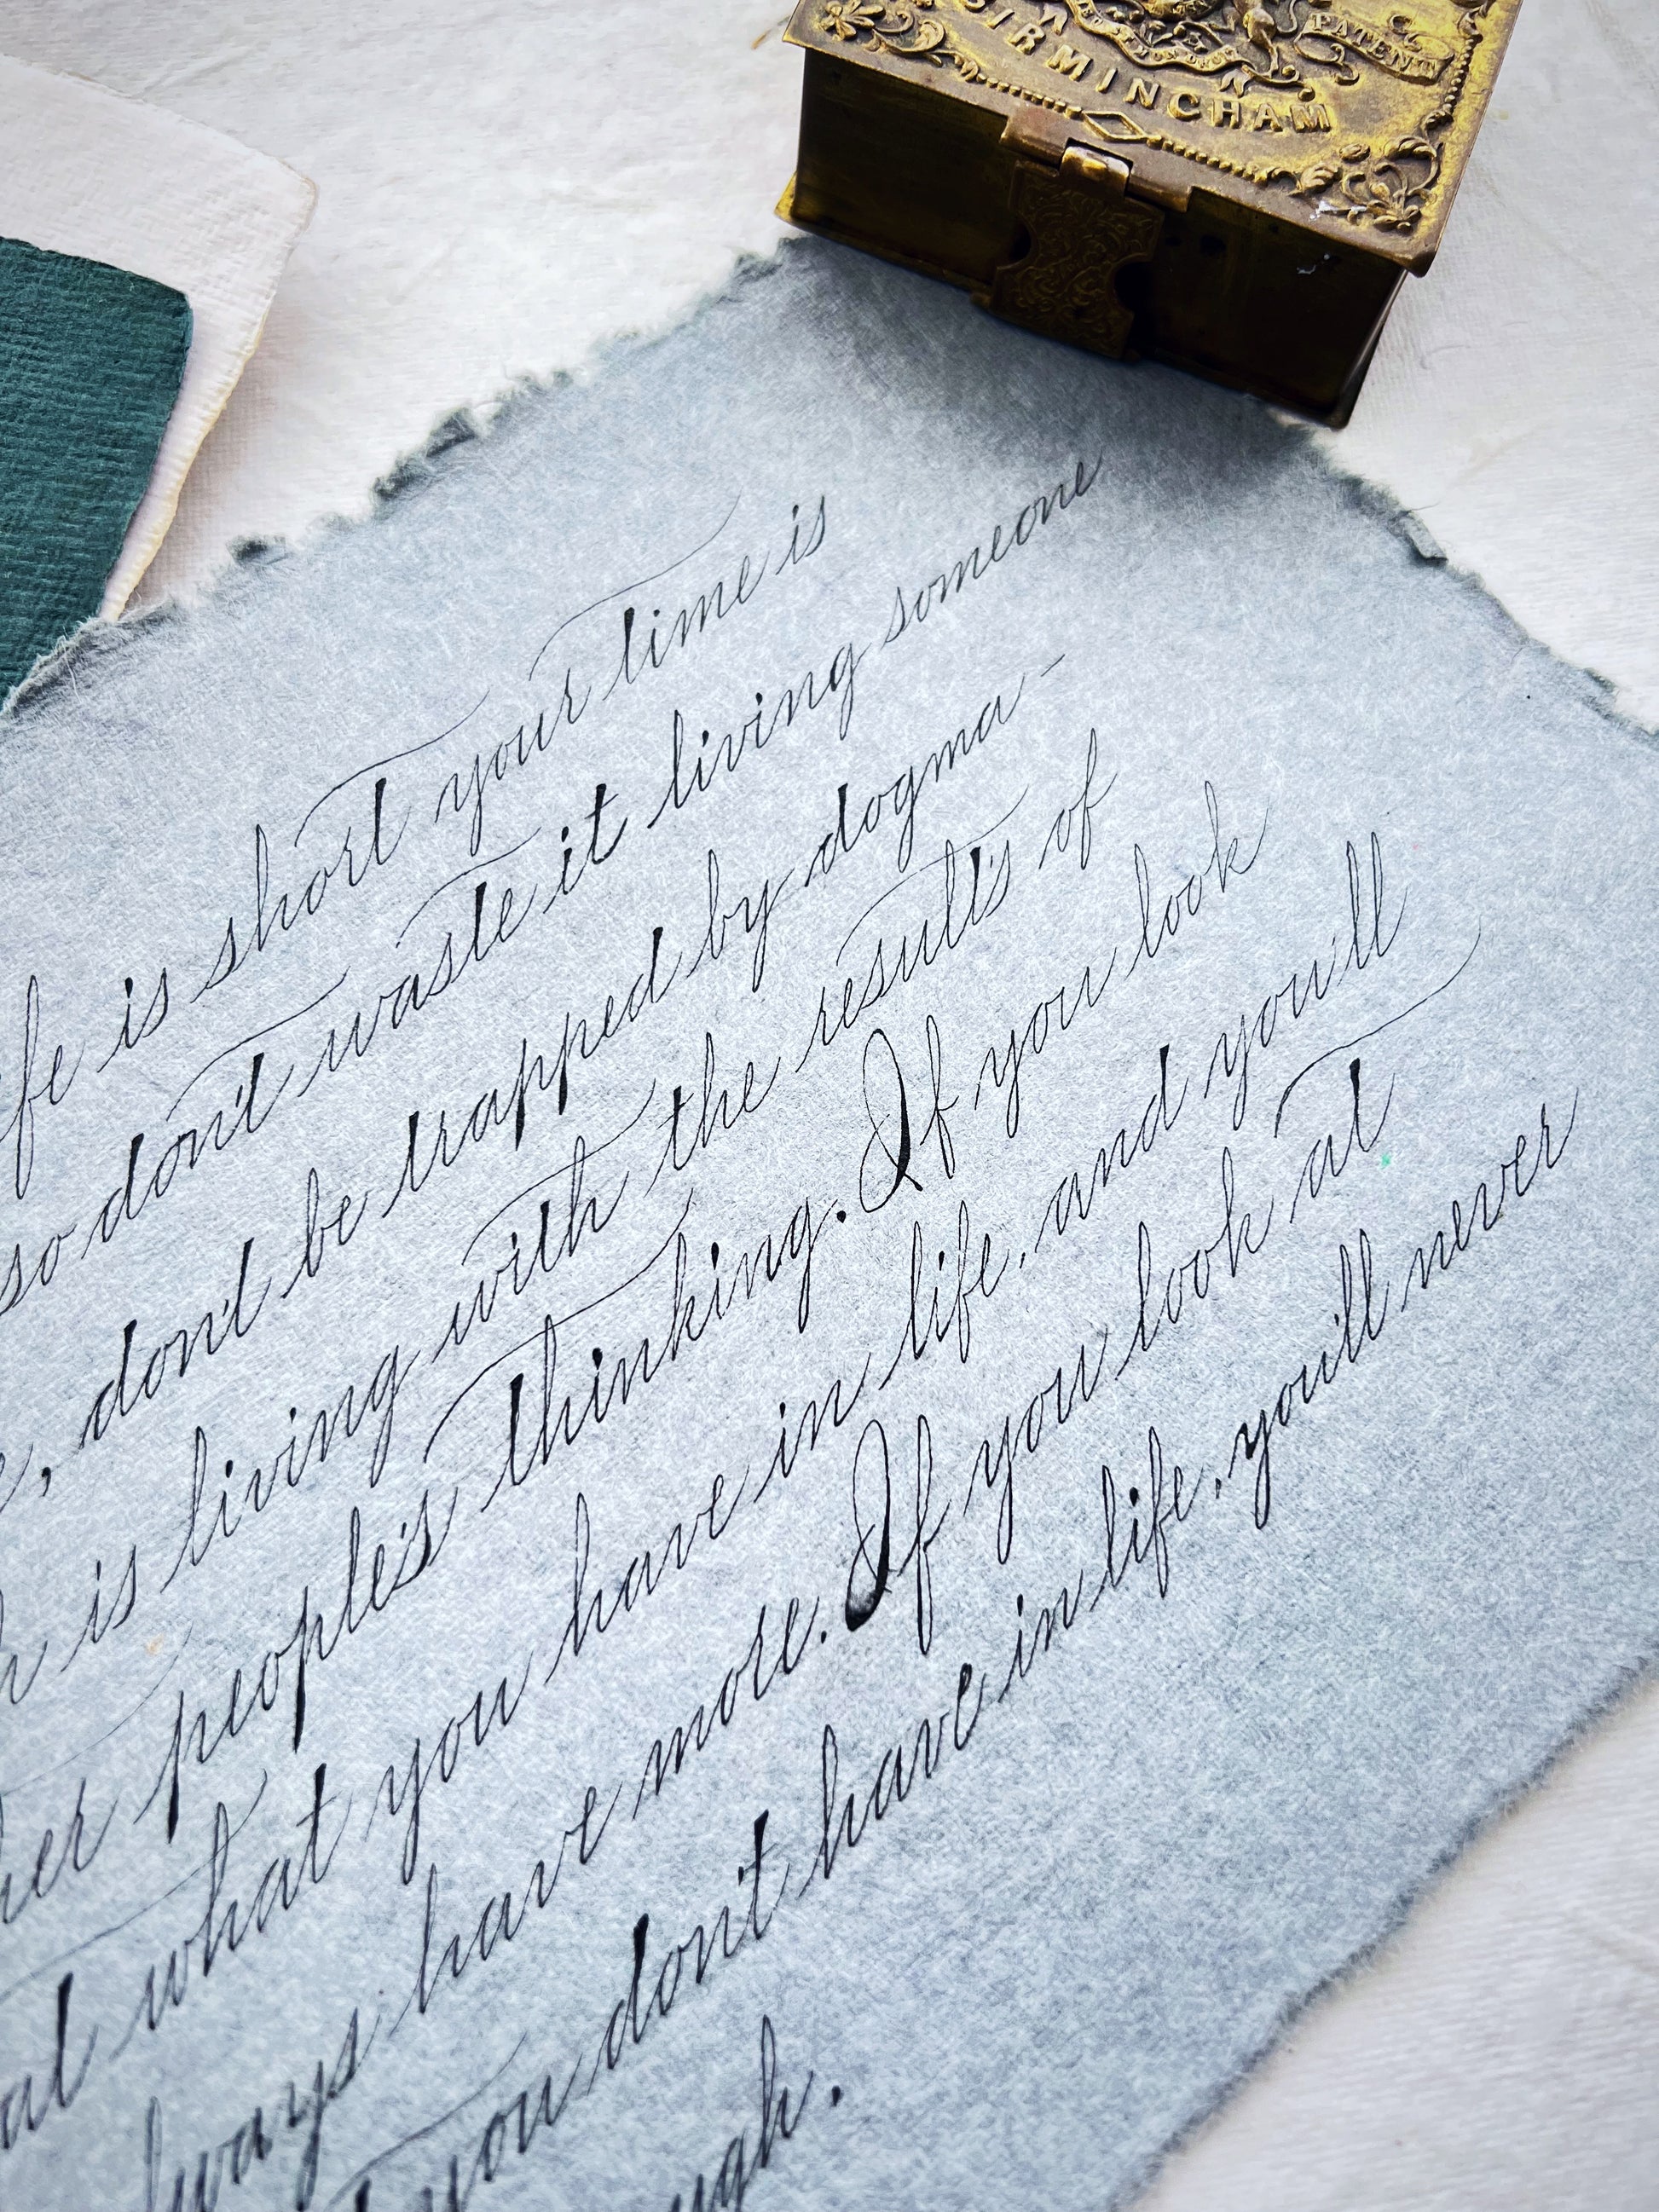 PATENT
BIRMINGHAM
is short your time is
so don't waste it living someone
don't be trapped by dogma -
is living with the results of
people's thinking. If you look
at what you have in life, and you'll
always have more. If you look at
you don't have in life, you'll never